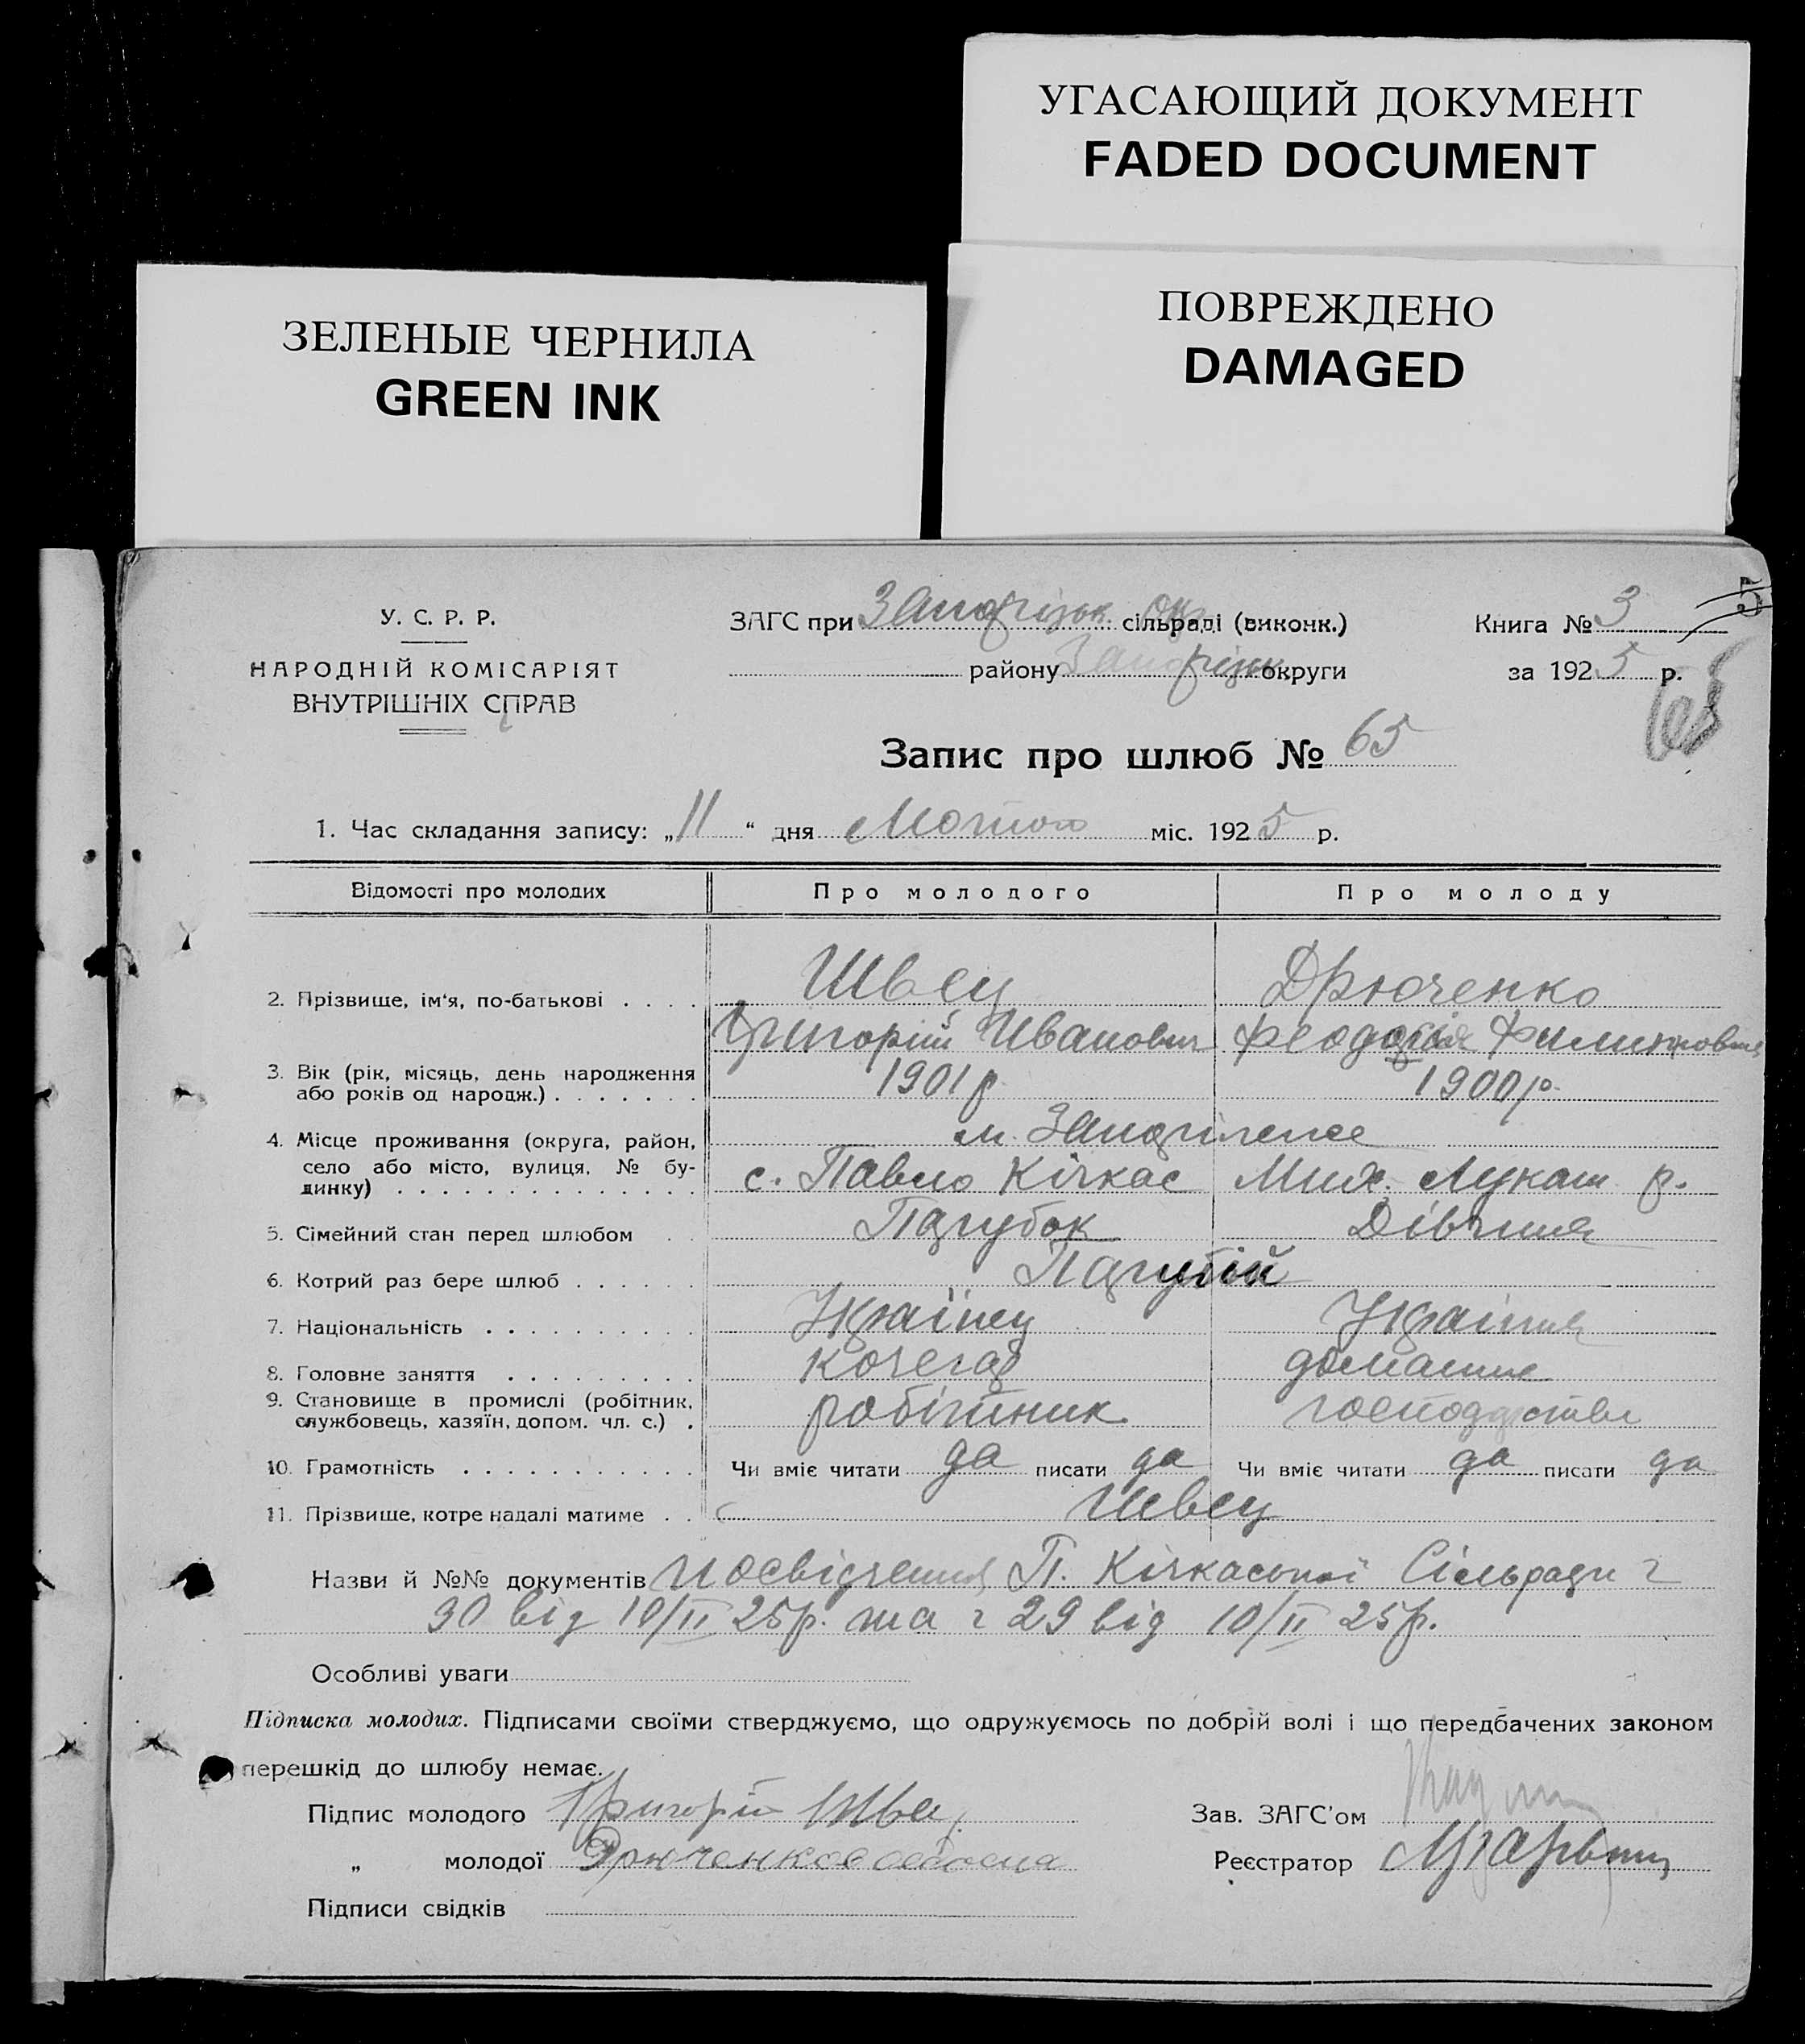 УГАСАЮЩИЙ ДОКУМЕНТ
FADED DOCUMENT
ЗЕЛЕНЫЕ ЧЕРНИЛА
GREEN INK
ПОВРЕЖДЕНО
DAMAGED
5
У. С. Р. Р.
НАРОДНІЙ КОМІСАРІЯТ
ВНУТРІШНІХ СПРАВ
ЗАГС при Запорізьк. Окр. сільраді (виконк.)
району Запорізьк округи
Книга № 3
за 1925 р.
65
Запис про шлюб № 65
1. Час складання запису: „11“ дня Лютого міс. 1925 р.
Відомості про молодих Про молодого Про молоду
2. Прізвище, ім'я, по-батькові . . . . Швец Дрюченко
Григорій Иванович Феодосія Филиповна
3. Вік (рік, місяць, день народження
або років од народж.) . . . . . . . 1901 р 1900 р.
4. Місце проживання (округа, район, м. Запоріжже
село або місто, вулиця, № бу-
динку) . . . . . . . . . . . . . . с. Павло Кічкас Мих. Лукаш р.
5. Сімейний стан перед шлюбом . . Парубок Дівчина
6. Котрий раз бере шлюб . . . . . .
7. Національність . . . . . . . . . . Українец Україна
8. Головне заняття . . . . . . . . . кочегар домашне
9. Становище в промислі (робітник,
службовець, хазяїн, допом. чл. с.) . робітник господарство
10. Грамотність . . . . . . . . . . . Чи вміє читати да писати да Чи вміє читати да писати да
11. Прізвище, котре надалі матиме . . Швец
Назви й №№ документів посвідчення П. Кічкаської Сільради ч
30 від 10/II 25р. та ч 29 від 10/II 25р.
Особливі уваги
Підписка молодих. Підписами своїми стверджуємо, що одружуємось по добрій волі і що передбачених законом
перешкід до шлюбу немає.
Підпис молодого Григорій Швец
Зав. ЗАГС'ом
„ молодої Дрюченко
Реєстратор
Підписи свідків